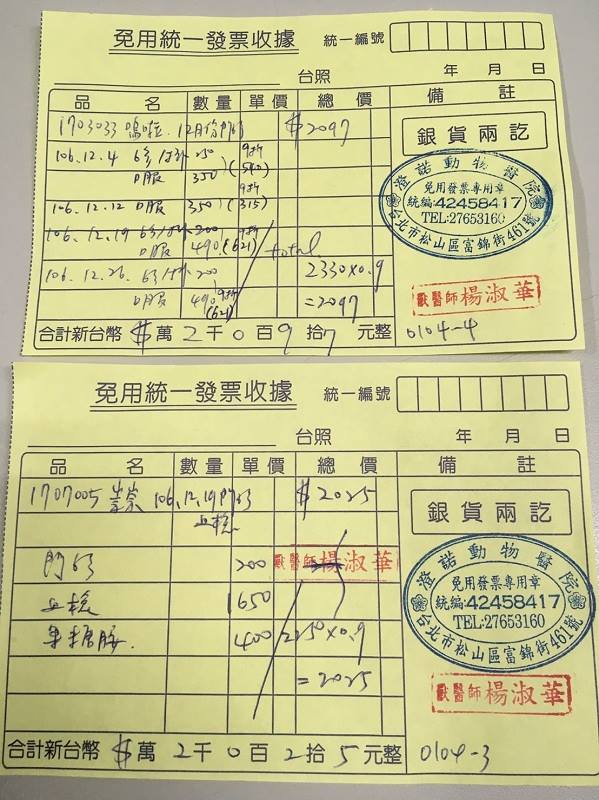 免用統一發票收據 統一編號
台照 年 月 日
品 名 數量 單價 總價 備 註
1703033 嗚啦 12月份 $2097
銀貨兩訖
106.12.4 250 9折
口服 350 (540)
9折
106.12.12 口服 350 (315)
106.12.19 200
口服 490 (621) total
106.12.26 200 2330×0.9
口服 490 9折 =2097
(621)
澄諾動物醫院
免用發票專用章
統編:42458417
TEL:27653160
台北市松山區富錦街461號
獸醫師 楊淑華
合計新台幣 $ 萬 2 千 0 百 9 拾 7 元整 0104-4
免用統一發票收據 統一編號
台照 年 月 日
品 名 數量 單價 總價 備 註
1707005 106.12.19 $2025
銀貨兩訖
200 獸醫師 楊淑華
1650
400 2250×0.9
=2025
澄諾動物醫院
免用發票專用章
統編:42458417
TEL:27653160
台北市松山區富錦街461號
獸醫師 楊淑華
合計新台幣 $ 萬 2 千 0 百 2 拾 5 元整 0104-3